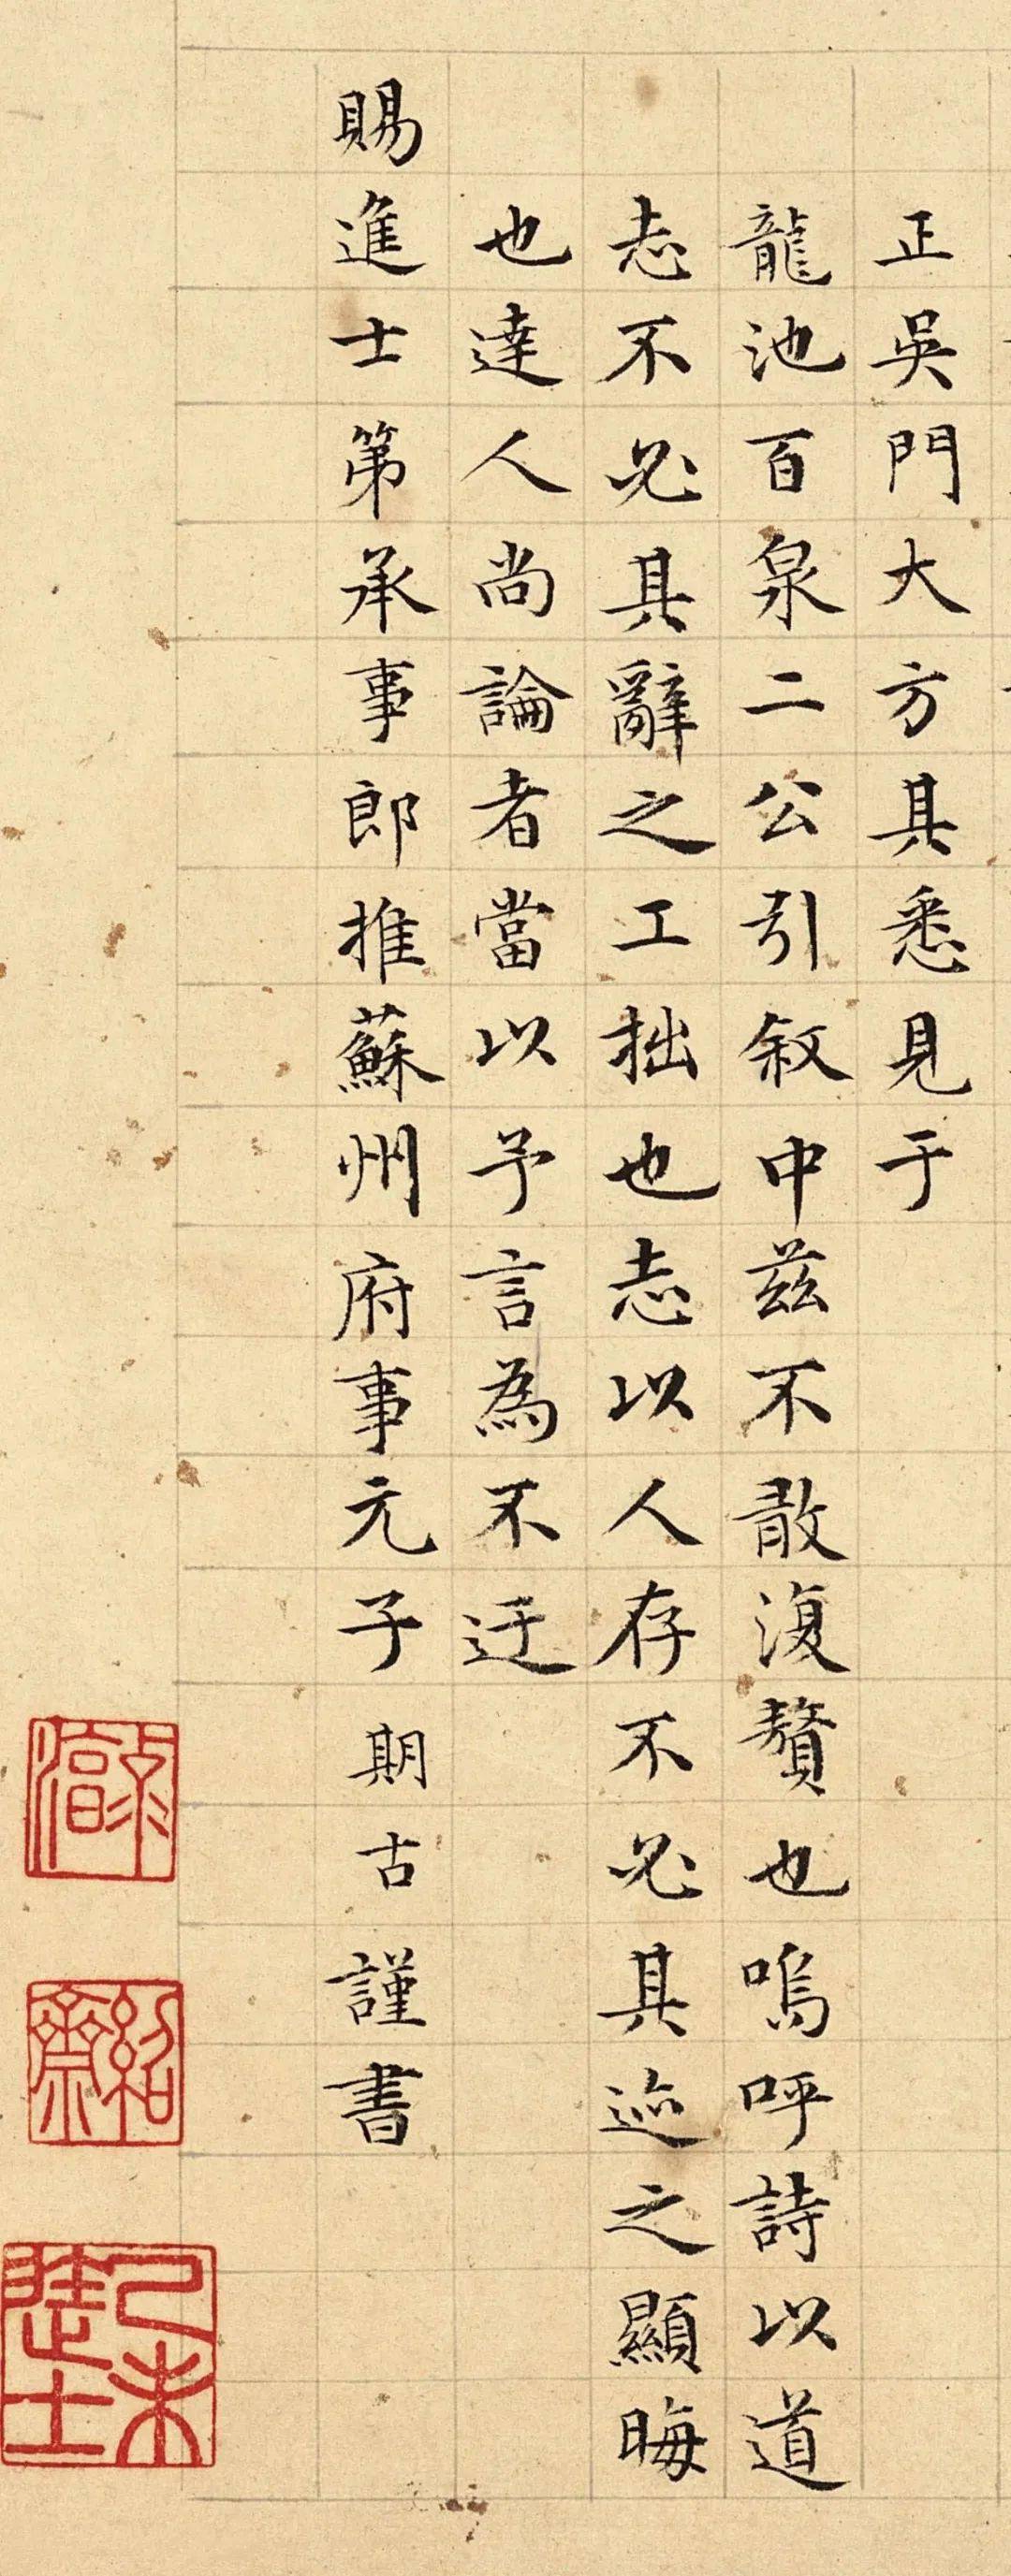 正吳門大方具悉見于
龍池百泉二公引敘中茲不敢復贅也嗚呼詩以道
志不必具辭之工拙也志以人存不必具迹之顯晦
也達人尚論者當以予言為不迂
賜進士第承事郎推蘇州府事元子期古謹書
紹齋
乙未進士